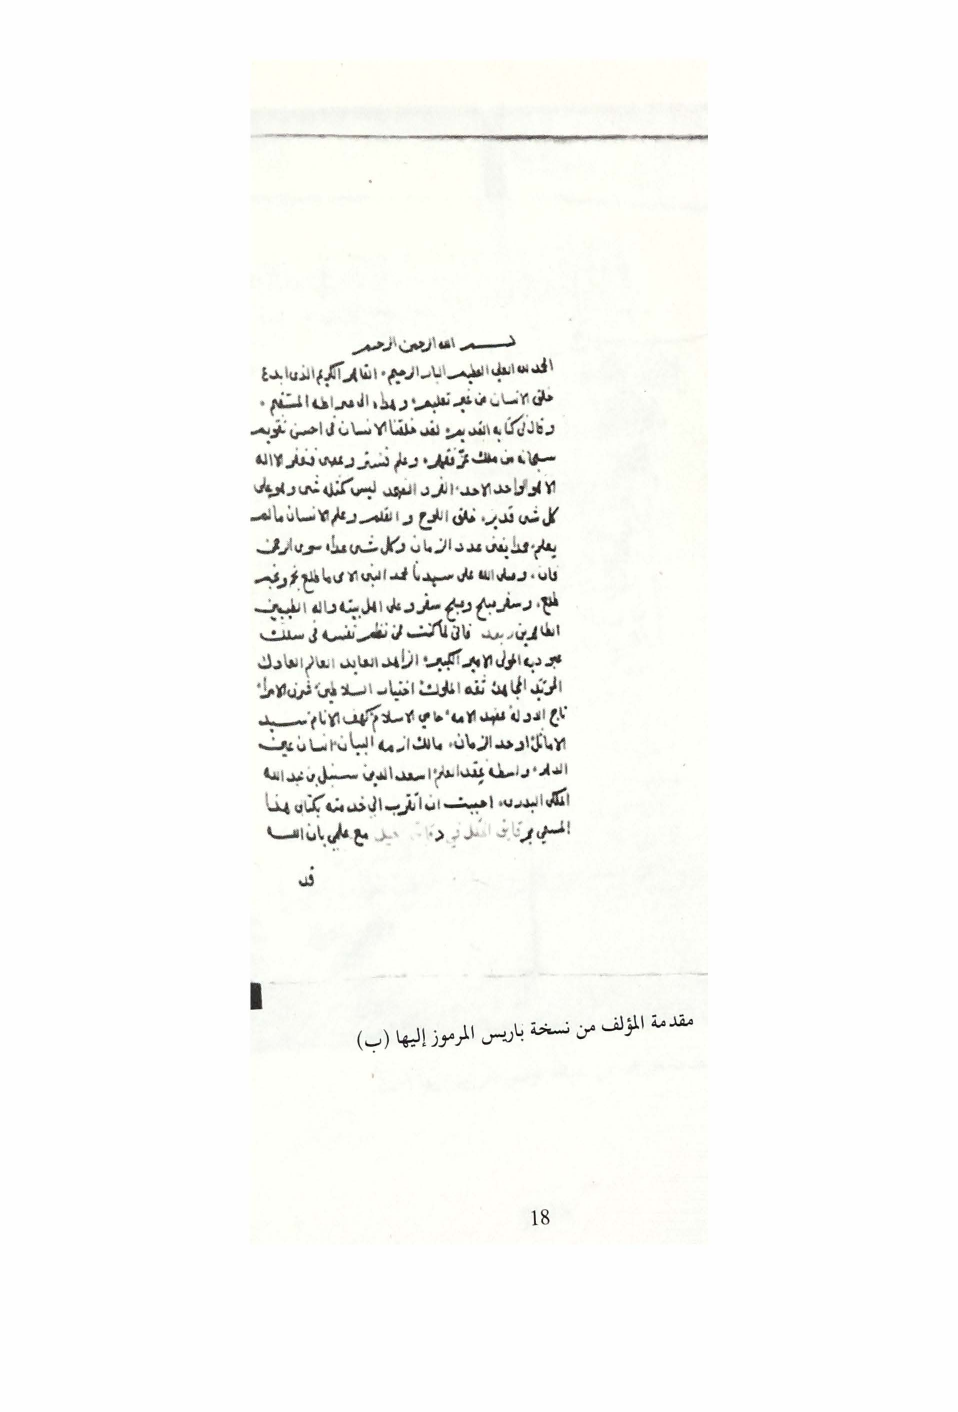 بسم الله الرحمن الرحيم
الحمد لله العلي العظيم البار الرحيم القاهر الكريم الذى ابدع
خلق الانسان من غير تعليم وهداه الى صراطه المستقيم
وقال فى كتابه القديم لقد خلقنا الانسان فى احسن تقويم
سبحانه من ملك عز فقهر وعلم فستر وعصى فغفر لا اله
الا هو الواحد الاحد الفرد الصمد ليس كمثله شى وهو على
كل شى قدير خلق اللوح و القلم وعلم الانسان مالم
يعلم حمدا يفنى عدد الزمان وكل شى عداه سوى الرحمن
فان وصلى الله على سيدنا محمد النبى الامى ما طلع نجم ونجم
طلع وسفر صبح وصبح سفر وعلى اهل بيته واله الطيبين
الطاهرين وبعد فانى لما كنت ممن نظم نفسه فى سلك
عبوديه المولى الامير الكبير الزاهد العابد العالم العادل
المؤيد المجاهد ثقه الملوك اختيار السلاطين شرف الامراء
تاج الدوله عضد الامه حامي الاسلام كهف الانام سيد
الاماثل اوحد الزمان مالك ازمه البيان انسان عين
الدهر واسطه عقد العلم اسعد الدين سنبل بن عبد الله
الملكى البدرى احببت ان اتقرب الى خدمته بكتابى هذا
المسمى برقايق الحلل في دقايق الحيل مع علمي بان الله
قد
مقدمة المؤلف من نسخة باريس المرموز إليها (ب)
18